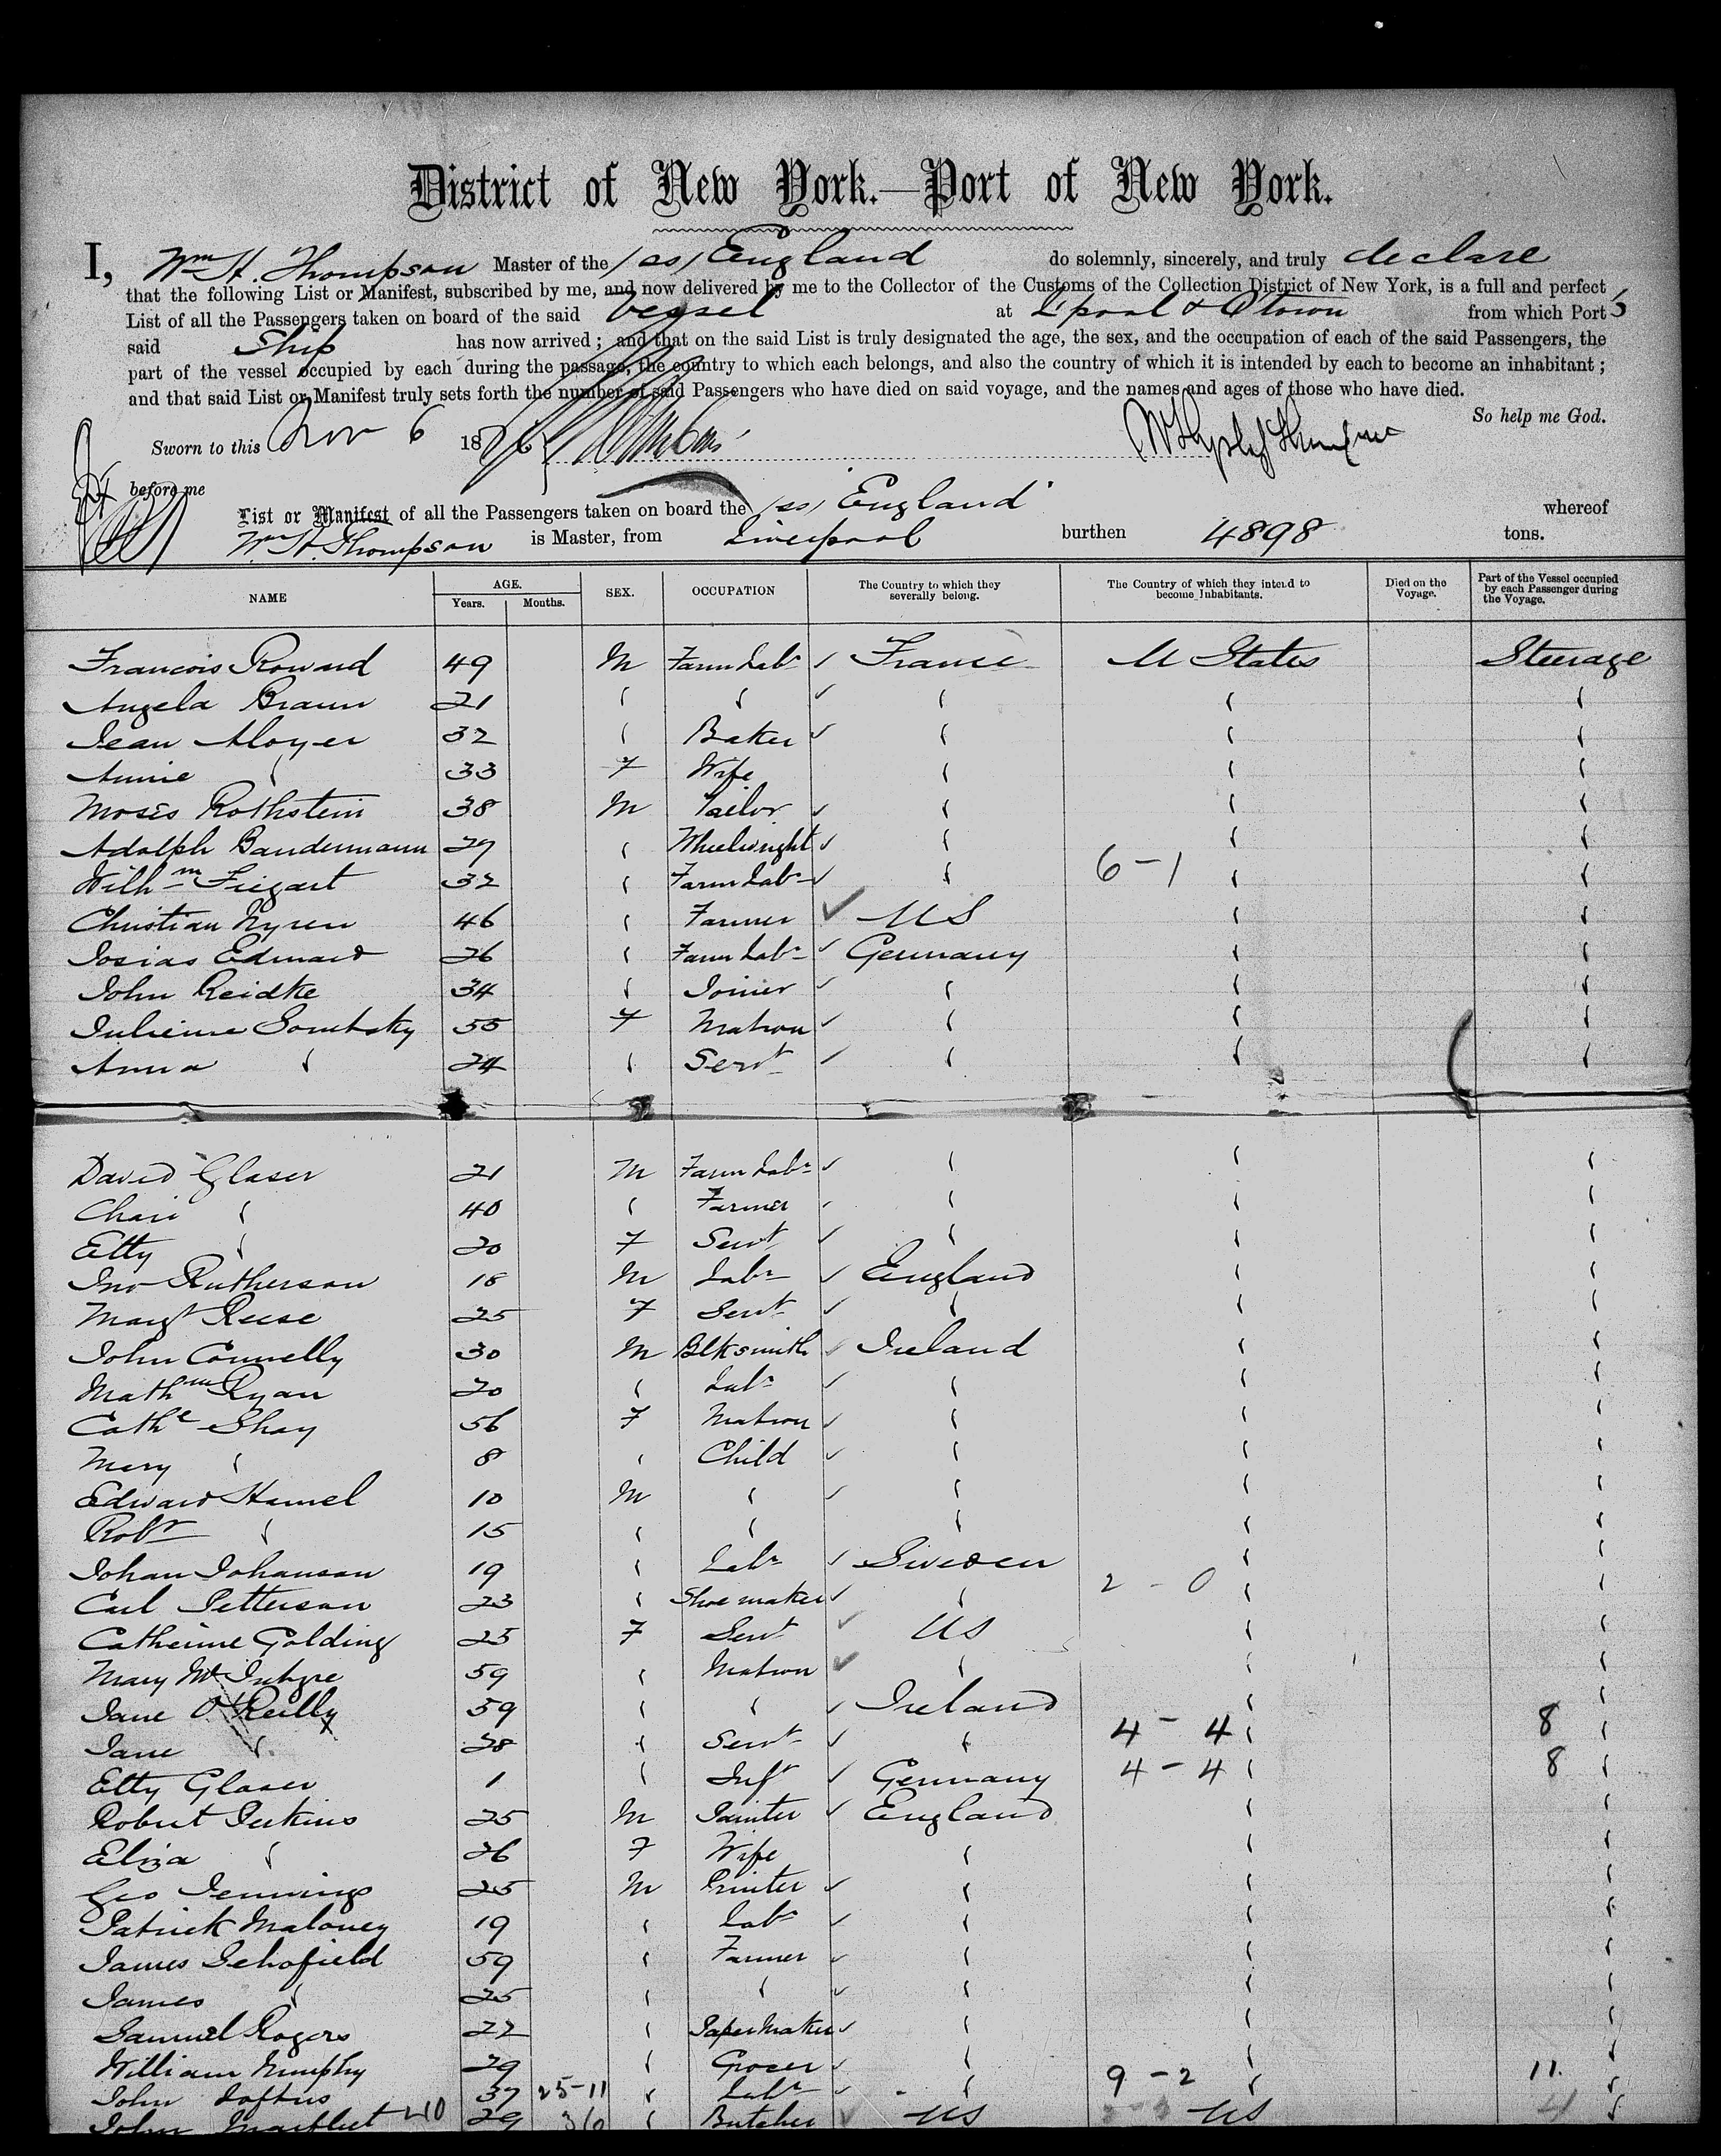 District of New York.—Port of New York.
I, Wm H. Thompson Master of the (ss) England do solemnly, sincerely, and truly declare
that the following List or Manifest, subscribed by me, and now delivered by me to the Collector of the Customs of the Collection District of New York, is a full and perfect
List of all the Passengers taken on board of the said vessel at L'pool & Qtown from which Port s
said Ship has now arrived; and that on the said List is truly designated the age, the sex, and the occupation of each of the said Passengers, the
part of the vessel occupied by each during the passage, the country to which each belongs, and also the country of which it is intended by each to become an inhabitant;
and that said List or Manifest truly sets forth the number of said Passengers who have died on said voyage, and the names and ages of those who have died.
So help me God.
Sworn to this Nov 6 1876
before me
List or Manifest of all the Passengers taken on board the (ss) England whereof
Wm H. Thompson is Master, from Liverpool burthen 4898 tons.
NAME AGE. Years. Months. SEX. OCCUPATION The Country to which they severally belong. The Country of which they intend to become Inhabitants. Died on the Voyage. Part of the Vessel occupied by each Passenger during the Voyage.
Francois Roward 49 M Farm Labr France U States Steerage
Angela Braun 21 " " " " "
Jean Moyer 32 " Baker " " "
Annie " 33 F Wife " " "
Moses Rothstein 38 M Tailor " " "
Adolph Bandermann 29 " Wheelwright " " "
Wilhm Fiegart 32 " Farm Labr " 6-1 " "
Christian Nyren 46 " Farmer US " "
Josias Edward 26 " Farm Labr Germany " "
John Reidke 34 " Joiner " " "
Julienne Sombsky 55 F Matron " " "
Anna " 24 " Servt " " "
David Glaser 21 M Farm Labr " " "
Chari " 40 " Farmer " " "
Etty " 20 F Servt " " "
Jno Rutherson 18 M Labr England " "
Margt Reese 25 F Servt " " "
John Connelly 30 M Blksmith Ireland " "
Mathm Ryan 20 " Labr " " "
Cathe Shay 56 F Matron " " "
Mary " 8 " Child " " "
Edward Hamel 10 M " " " "
Robt " 15 " " " " "
Johan Johanson 19 " Labr Sweden " "
Carl Petterson 23 " Shoemaker " 2-0 " "
Catherine Golding 25 F Servt US " "
Mary McIntyre 59 " Matron " " "
Jane O'Reilly 59 " " Ireland " "
Jane " 28 " Servt " 4-4 " 8 "
Etty Glaser 1 " Inft Germany 4-4 " 8 "
Robert Perkins 25 M Painter England " "
Eliza " 26 F Wife " " "
Geo Jennings 25 M Printer " " "
Patrick Maloney 19 " Labr " " "
James Schofield 59 " Farmer " " "
James " 25 " " " " "
Samuel Rogers 22 " Paper Maker " " "
William Murphy 29 " Grocer " " "
John Loftus 37 25-11 " Labr " 9-2 " 11. "
John 40 29 36 " Butcher US US 4 "